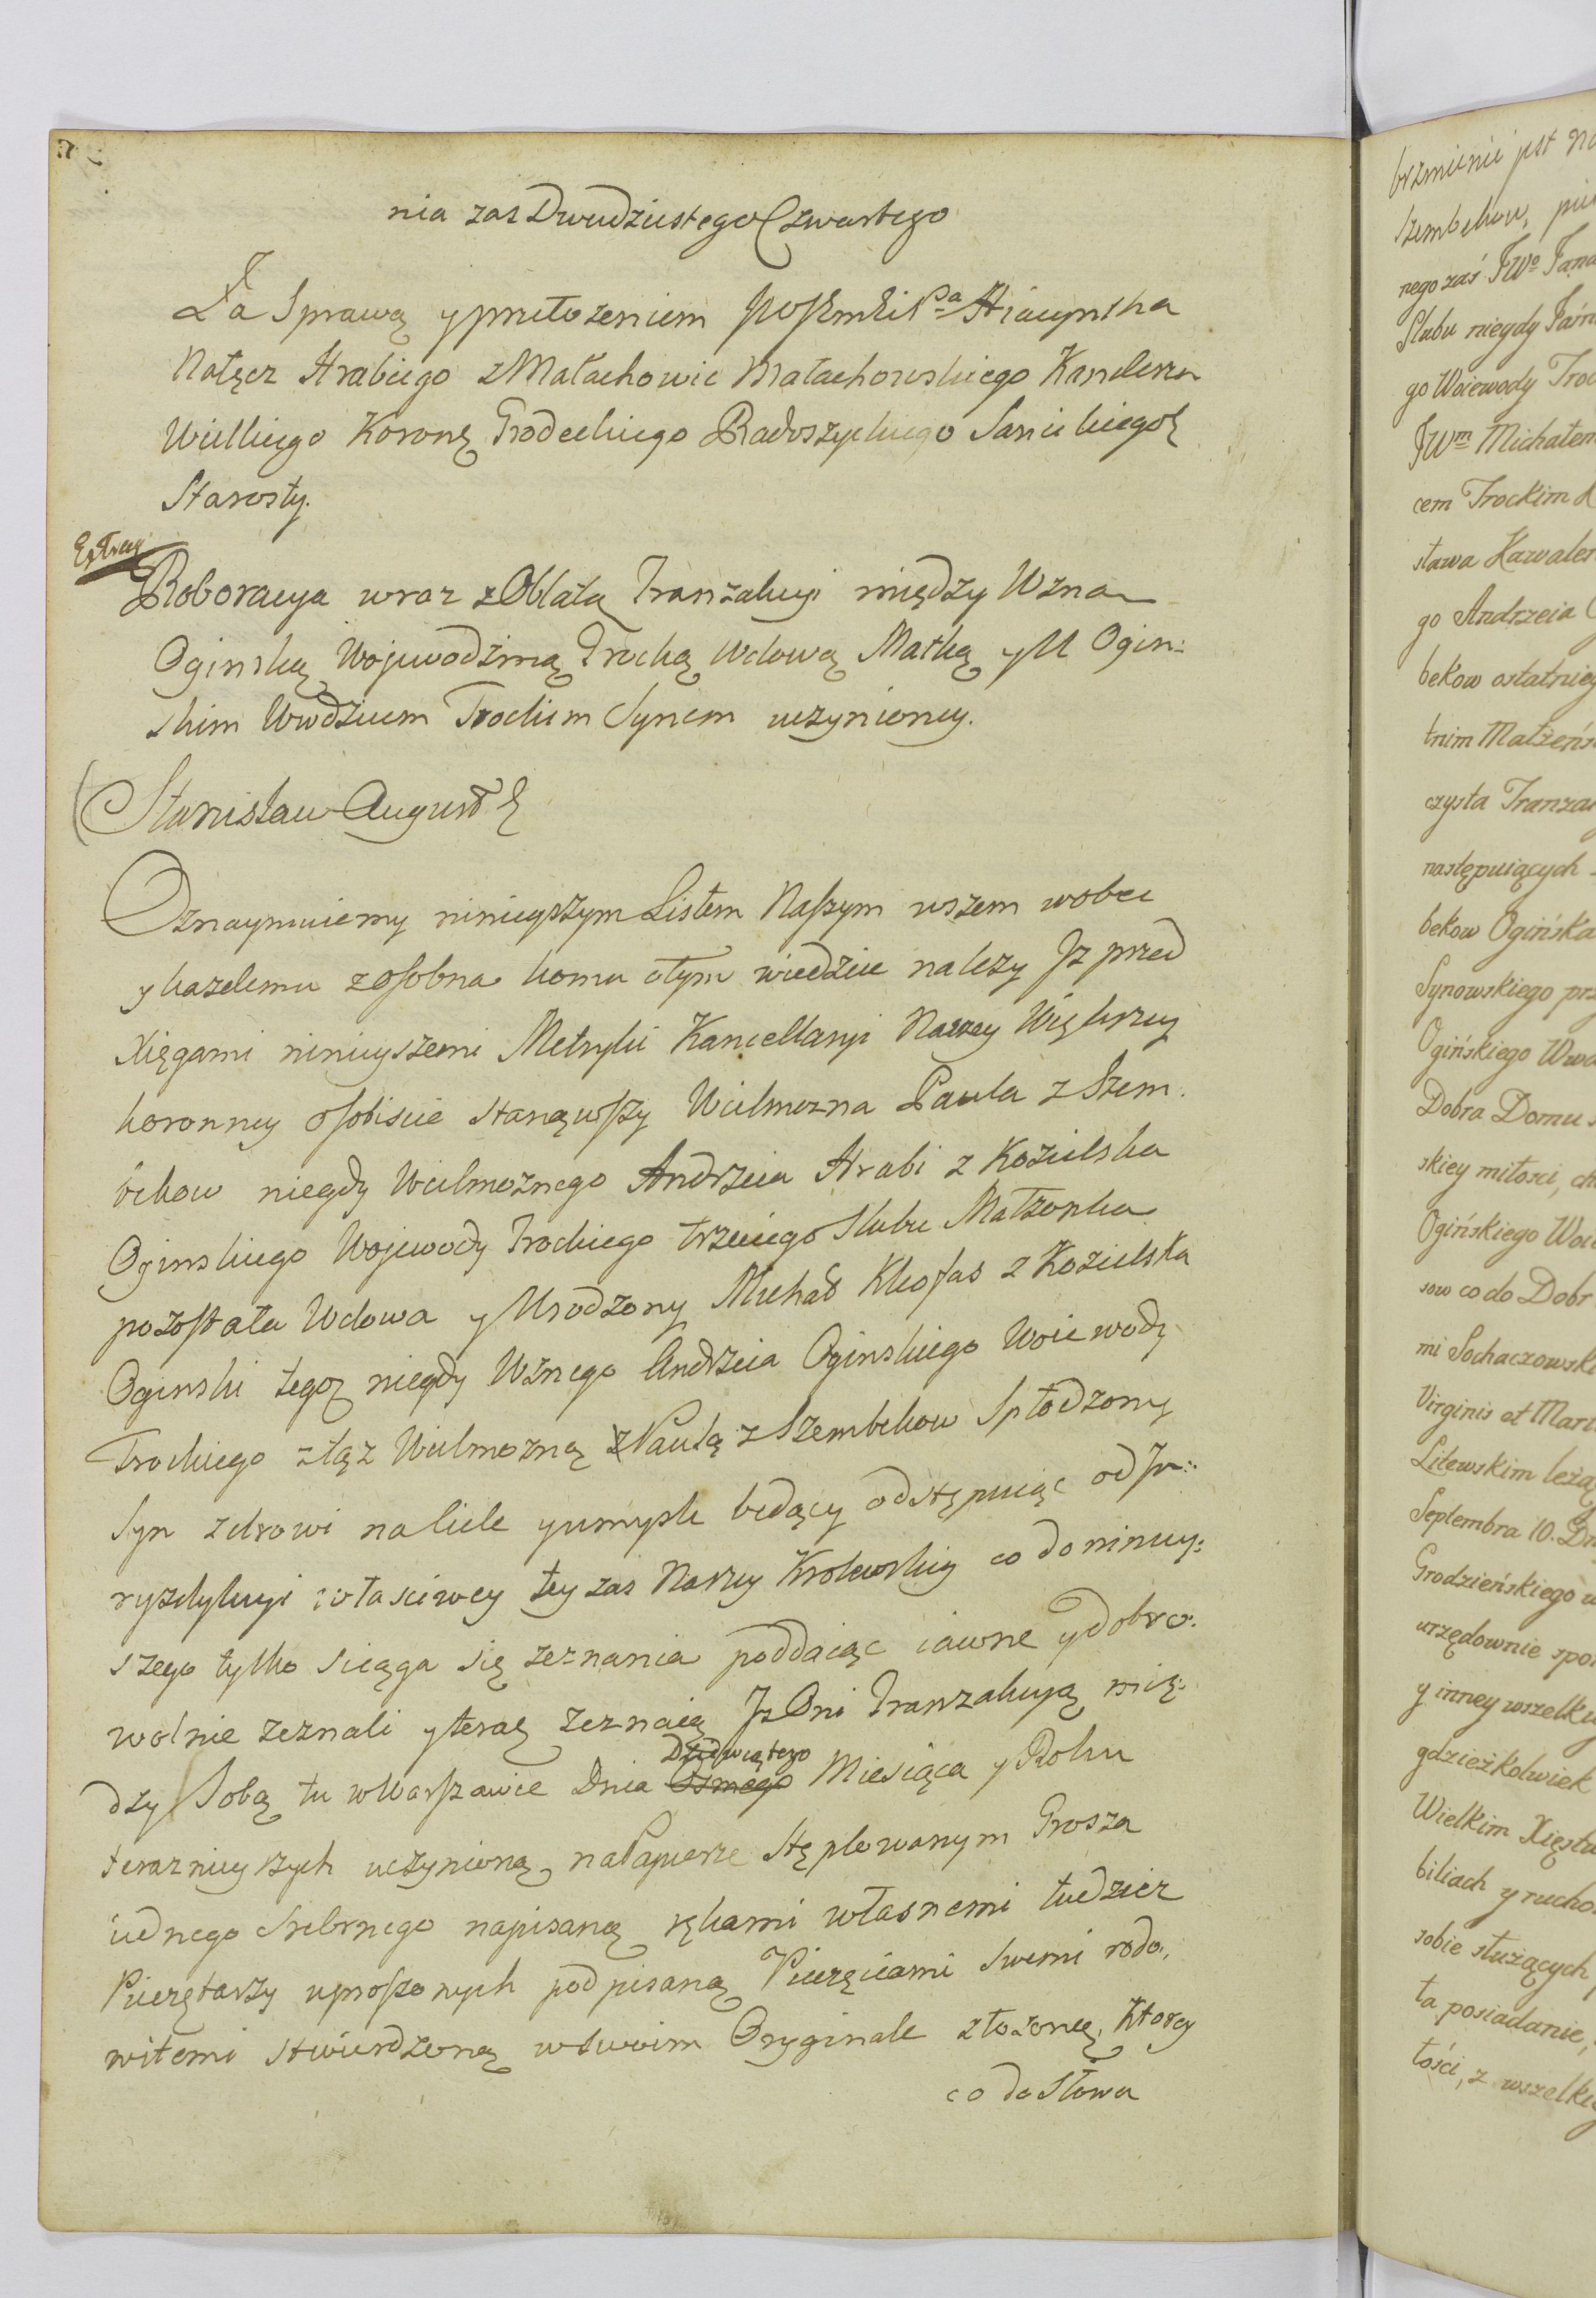 nia zas Dwudziestego Czwartego
Za Sprawą y przełożeniem Hiacyntha
Nałęcz Hrabiego z Małachowic Małachowskiego Kanclerza
Wielkiego Koronę Grodeckiego Radoszyckiego Sanickiego
Starosty.
Extrag
Roboracya wraz z Oblatą Tranzakcyi między Wzną
Oginską Wojewodziną Trocką Wdową Matką y U Ogin:
skim Wwdzicem Trockim Synem uczynioney.
Stanisław August
Oznaymuiemy ninieyszym Listem Naszym wszem wobec
y każdemu zosobna komu otym wiedzieć należy Iż przed
Xięgami ninieyszemi Metryki Kancellaryi Naszey Więkrzey
koronney osobiscie stanąwszy Wielmożna Paula z Szem
bekow niegdy Wielmożnego Andrzeia Hrabi z Kozielska
Oginskiego Wojewody Trockiego trzeciego slubu Małżonka
pozostała Wdowa y Urodzony Michał Kleofas z Kozielska
Oginski tegoz niegdy Wznego Andrzeia Oginskiego Woiewody
Trockiego z tąz Wielmozną Paulą z Szembekow Spłodzony
Syn zdrowi naciele y umysle będący odstępuiąc od Ju:
ryzdykcyi własciwey tey zas Naszey Krolewskiey co do niniey:
szego tylko sciąga się zeznania poddaiąc iawne y dobro:
wolnie zeznali y teraz zeznaią Iż Oni Tranzakcyą mię:
dzy Sobą tu w Warszawie Dnia Osmego Dziewiątego Miesiąca y Roku
teraznieyszych uczynioną, na Papierze Stęplowanym Grosza
iednego Srebrnego napisaną rękami własnemi tudzież
Pieczętarzy uproszonych podpisaną Pieczęciami Swemi rodo,
witemi stwierdzoną w swoim Oryginale złożonę, Ktorey
co do Słowa
brzmienie jest
Szembekow,
nego zaś JWo
Slubu niegdy
go Woiewody
JWm Michałem
cem Trockim
sława
go Andrzeia
bekow
tnim
czysta
następuiących
bekow Ogińska
Synowskiego
Ogińskiego
Dobra Domu
skiey miłosci,
Ogińskiego
sow co do Dobr
mi
Virginis et
Litewskim
Septembra 10.
Grodzieńskiego
urzędownie
y inney
gdzieżkolwiek
Wielkim
biliach y
sobie służących
ta posiadanie,
tości, z